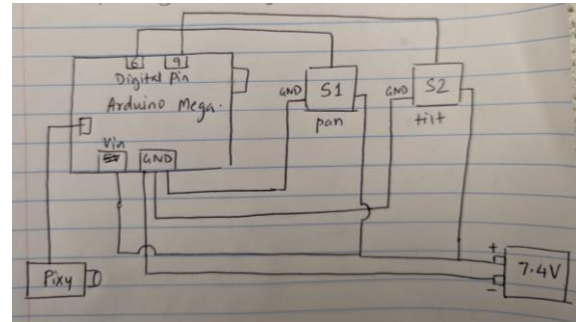 6 9
Digital Pin
Arduino Mega.
Vin
GND
GND S1
pan
GND S2
tilt
+
7.4V
-
Pixy